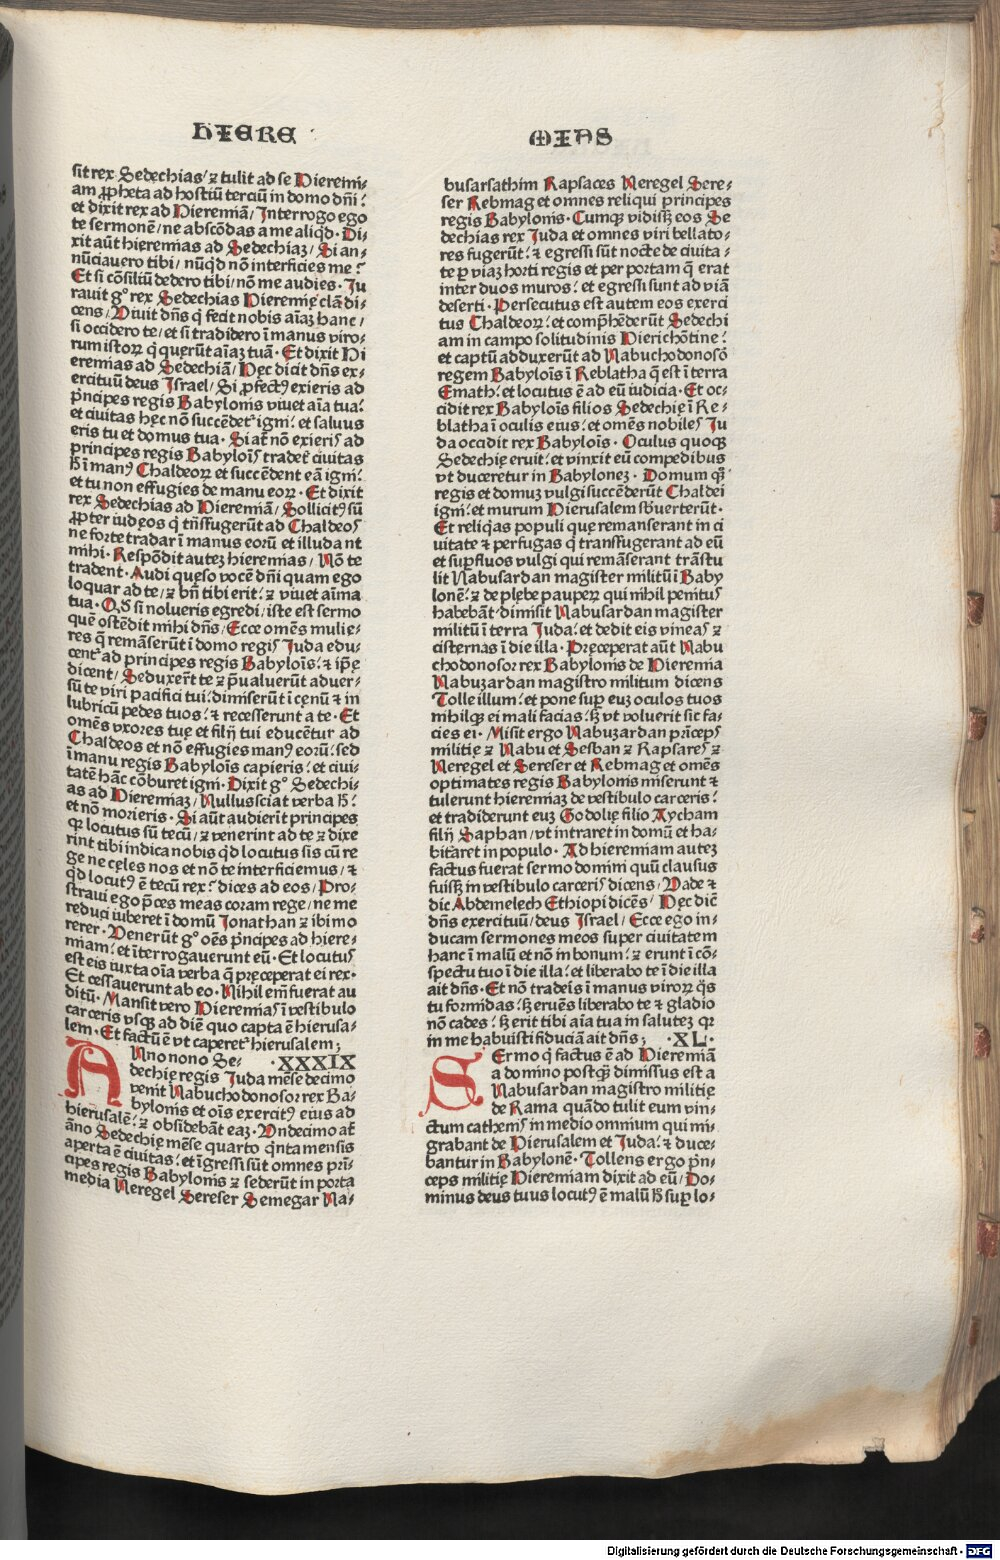 HIERE
MIAS
sit rex Sedechias/ ꝛ tulit ad se Hieremi⸗
am ꝓpheta ad hostiũ terciũ in domo dñi:
et dixit rex ad Hieremiã/ Interrogo ego
te sermonẽ/ ne abscõdas a me aliqd̛. Di⸗
xit aũt hieremias ad Sedechiaz/ Si an⸗
nũciauero tibi/ nũqd̛ nõ interficies me?
Et si cõsiliũ dedero tibi/ nõ me audies. Iu
rauit gº rex Sedechias Hieremię clã di⸗
cens/ Viuit dñs q̇ fecit nobis aĩaz hanc/
si occidero te/ et si tradidero ĩ manus viro⸗
rum istoꝝ q̇ querũt aĩaz tuã. Et dixit Hi
eremias ad Sedechiã/ Hęc dicit dñs ex⸗
ercituũ deus Israel/ Si ꝓfectꝰ exieris ad
pͥncipes regis Babylonis viuet aĩa tua:
et ciuitas hęc nõ succẽdetᷣ igni: et saluus
eris tu et domus tua. Si aũt nõ exieris ad
principes regis Babyloĩs tradet̃ ciuitas
hͦ ĩ manꝰ Chaldeoꝝ et succẽdent eã igni:
et tu non effugies de manu eoꝝ. Et dixit
rex Sedechias ad Hieremiã/ Sollicitꝰ sũ
ꝓpter iudęos q̇ trãsfugerũt ad Chaldeos
ne forte tradar ĩ manus eorũ et illudant
mihi. Respõdit autez hieremias/ Nõ te
tradent. Audi queso vocẽ dñi quam ego
loquar ad te/ ꝛ bñ tibi erit: ꝛ viuet aĩma
tua. Qd̛ si nolueris egredi/ iste est sermo
quẽ ostẽdit mihi dñs/ Ecce omẽs mulię⸗
res q̃ remãserũt ĩ domo regis Iuda edu⸗
centᷣ ad principes regis Babyloĩs: ꝛ ip̃ę
dicent/ Seduxerũt te ꝛ p̃ualuerũt aduer⸗
sũ te viri pacifici tui: dimiserũt ĩ cęnũ ꝛ in
lubricũ pedes tuos: ꝛ recesserunt a te. Et
omẽs vxores tuę et filij tui educẽtur ad
Chaldeos et nõ effugies manꝰ eorũ: sed
ĩ manu regis Babyloĩs capieris: et ciui⸗
tatẽ hãc cõburet igni. Dixit gº Sedechi⸗
as ad Hieremiaz/ Nullus sciat verba hͦ:
et nõ morieris. Si aũt audierit principes
qꝛ locutus sũ tecũ/ ꝛ venerint ad te ꝛ dixe
rint tibi indica nobis qd̛ locutus sis cũ re
ge ne cęles nos et nõ te interficiemus/ ꝛ
qd̛ locutꝰ ẽ tecũ rex: dices ad eos/ Pro⸗
straui ego p̃ces meas coram rege/ ne me
reduci iuberet ĩ domũ Jonathan ꝛ ibi mo
rerer. Venerũt gº oẽs pͥncipes ad hiere⸗
miam: et ĩterrogauerunt eũ. Et locutus
est eis iuxta oĩa verba q̃ pręceperat ei rex.
Et cessauerunt ab eo. Nihil em̃ fuerat au
ditũ. Mansit vero Hieremias ĩ vestibulo
carceris vsqꝫ ad diẽ quo capta ẽ hierusa⸗
lem. Et factũ ẽ vt caperetᷣ hierusalem;
ANno nono Se⸗ .XXXIX
dechię regis Juda mẽse decimo
venit Nabuchodonosor rex Ba⸗
bylonis et oĩs exercitꝰ eius ad
hierusalẽ: ꝛ obsidebãt eaz. Vndecimo aũt
ãno Sedechię mẽse quarto q̇nta mensis
aperta ẽ ciuitas: et ĩgressi sũt omnes pri⸗
cipes regis Babylonis ꝛ sederũt in porta
media Neregel Sereser Semegar Na⸗
busarsathim Rapsaces Neregel Sere⸗
ser Rebmag et omnes reliqui principes
regis Babylonis. Cumqꝫ vidisꝫ eos Se
dechias rex Juda et omnes viri bellato⸗
res fugerũt: ꝛ egressi sũt nocte de ciuita⸗
te ꝑ viaz horti regis et per portam q̃ erat
inter duos muros: et egressi sunt ad viã
deserti. Persecutus est autem eos exerci
tus Chaldeoꝝ: et comp̃hẽderũt Sedechi
am in campo solitudinis Hierichõtine:
et captũ adduxerũt ad Nabuchodonosõ
regem Babyloĩs ĩ Reblatha q̃ est ĩ terra
Emath: et locutus ẽ ad eũ iudicia. Et oc⸗
cidit rex Babyloĩs filios Sedechię ĩ Re⸗
blatha ĩ oculis eius: et omẽs nobiles Ju
da occidit rex Babyloĩs. Oculus quoqꝫ
Sedechię eruit: et vinxit eũ compedibus
vt duceretur in Babylonez. Domum qꝫ
regis et domuz vulgi succẽderũt Chaldei
igni: et murum Hierusalem sb̛uerterũt.
Et reliq̇as populi quę remanserant in ci
uitate ꝛ perfugas q̇ transfugerant ad eũ
et suꝑfluos vulgi qui remãserant trãstu
lit Nabusardan magister militũ ĩ Baby
lonẽ: ꝛ de plębe pauperꝝ qui nihil penitus
habebãt dimisit Nabusardan magister
militũ ĩ terra Juda: et dedit eis vineas ꝛ
cisternas ĩ die illa. Pręceperat aũt Nabu
chodonosor rex Babylonis de Hieremia
Nabuzardan magistro militum dicens
Tolle illum: et pone suꝑ euz oculos tuos
nihilqꝫ ei mali facias: sꝫ vt voluerit sic fa⸗
cies ei. Misit ergo Nabuzardan prĩceps
militię ꝛ Nabu et Sesban ꝛ Rapsares ꝛ
Neregel et Sereser et Rebmag et omẽs
optimates regis Babylonis miserunt ꝛ
tulerunt hieremiaz de vestibulo carceris:
et tradiderunt euz Godolię filio Aycham
filij Saphan/ vt intraret in domũ et ha⸗
bitaret in populo. Ad hieremiam autez
factus fuerat sermo domini quũ clausus
fuisꝫ in vestibulo carceris dicens/ Vade ꝛ
dic Abdemelech Ethiopi dicẽs/ Hęc dič
dñs exercituũ/ deus Israel/ Ecce ego in⸗
ducam sermones meos super ciuitatem
hanc ĩ malũ et nõ in bonum: ꝛ erunt ĩ cõ⸗
spectu tuo ĩ die illa: et liberabo te ĩ die illa
ait dñs. Et nõ tradeis ĩ manus viroꝝ q̃s
tu formidas: sꝫ eruẽs liberabo te ꝛ gladio
nõ cades: sꝫ erit tibi aĩa tua in salutez qꝛ
in me habuisti fiduciã ait dñs; .XL.
SErmo q̇ factus ẽ ad Hieremiã
a domino postqꝫ dimissus est a
Nabusardan magistro militię
de Rama quãdo tulit eum vin⸗
ctum cathenis in medio omnium qui mi⸗
grabant de Hierusalem et Juda: ꝛ duce⸗
bantur in Babylonẽ. Tollens ergo pͥn⸗
ceps militię Hieremiam dixit ad eũ/ Do⸗
minus deus tuus locutꝰ ẽ malũ hͦ suꝑ lo⸗
Digitalisierung gefördert durch die Deutsche Forschungsgemeinschaft - DFG